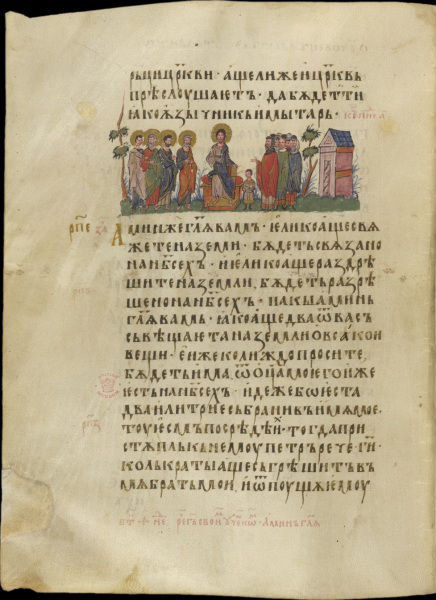 рьци цр҃кви · аще ли же и цр҃квь
прѣслоушаетъ · да бѫдет ти
ꙗко ѧзычникь и мытарь ·
рп҃е за
Аминь же гл҃ѧ вамъ · елико аще свѧ
жете на земли · бѫдеть свѧзано
на нб҃сехъ · и елико аще раздрѣ
шите на земли, бѫдеть разрѣ
шено на нб҃сехъ · пакы аминь
гл҃ѧ вамь · ꙗко аще два ѿ васъ
съвѣщаета на земли ѡ всꙗкои
вещи · еѫже колиждо просите,
бѫдеть има, ѿ ѡц҃а моего иже
есть на нб҃сехъ · идеже бѡ еста
два или трие събрани въ имѧ мое ·
тоу есмъ посрѣдѣ и҃ · тогда при
стѫпль къ немоу петръ рече · ги҃ ·
колькраты аще съгрѣшить въ
мѧ братъ мои, и ѿпоущѫ емоу